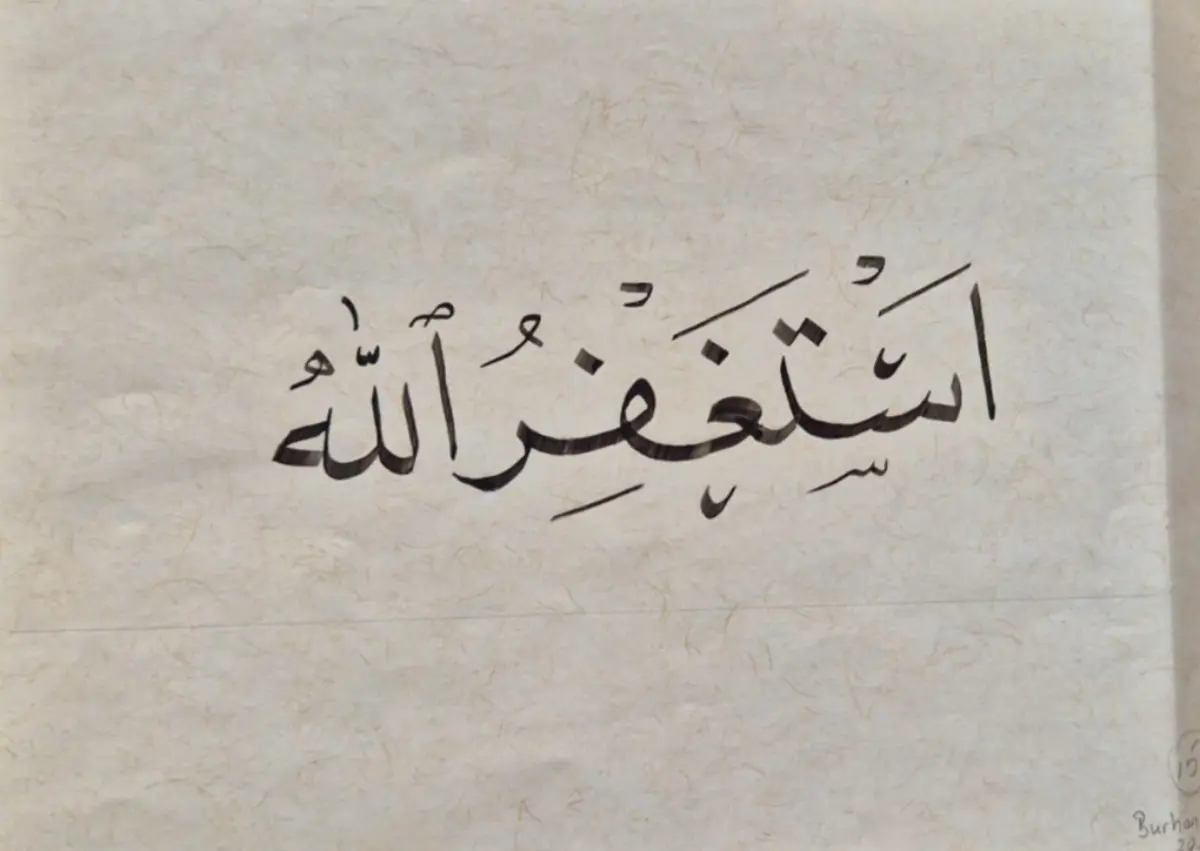 اَسْتَغْفِرُ ٱللّٰهُ
Burhan